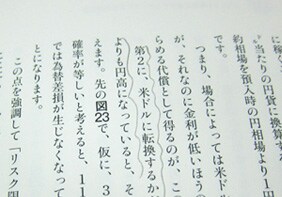 に稼
"当たりの円貨に換算す
約相場を預入時の円相場より1円
です。
つまり、場合によっては米ドル
が、それなのに金利が低いほうの
らめる代償として得るのが、こ
第2に、米ドルに転換するか
よりも円高になっていると、そ
えます。先の図23で、仮に、3
確率が等しいと考えると、11
では為替差損が生じなくなって
とになります。
この点を強調して「リスク限